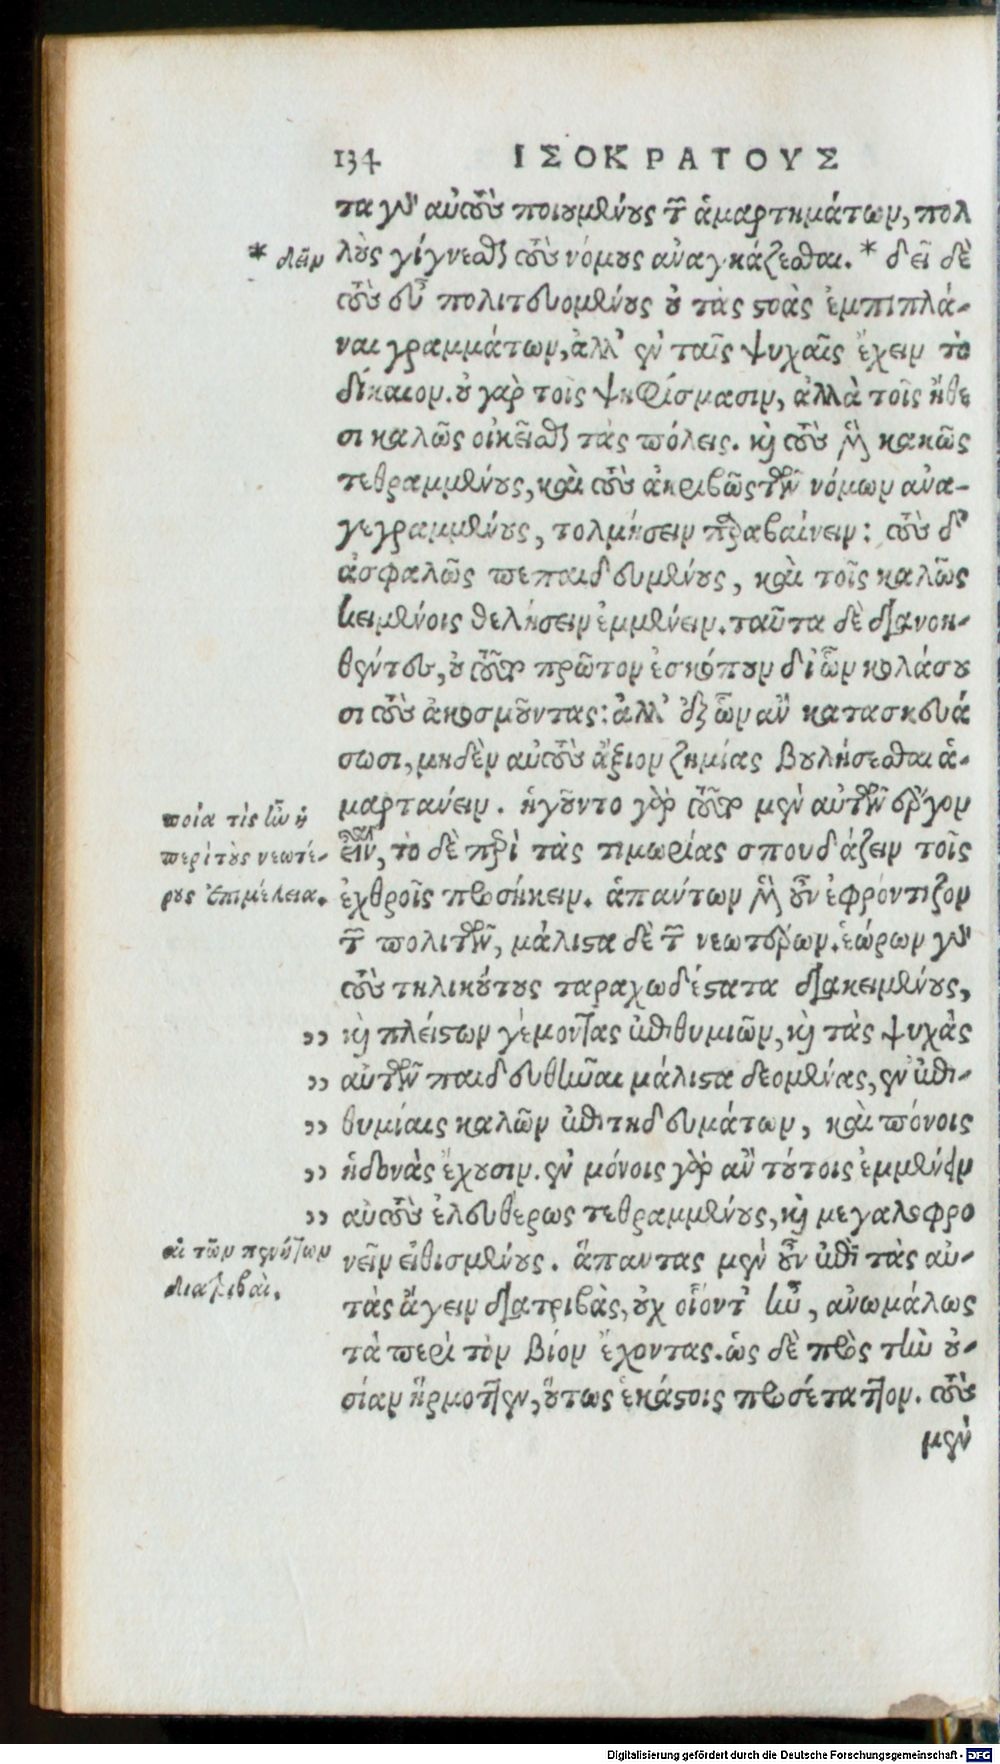 134 ΙΣΟΚΡΑΤΟΥΣ
τα γὰρ αὐτοὺς ποιουμένους τῶν ἁμαρτημάτων, πολ
* δεῖν
λοὺς γίγνεσθαι τοὺς νόμους ἀναγκάζεσθαι. * δεῖ δὲ
τοὺς εὖ πολιτευομένους οὐ τὰς στοὰς ἐμπιπλά-
ναι γραμμάτων, ἀλλ' ἐν ταῖς ψυχαῖς ἔχειν τὸ
δίκαιον. οὐ γὰρ τοῖς ψηφίσμασιν, ἀλλὰ τοῖς ἤθε
σι καλῶς οἰκεῖσθαι τὰς πόλεις. καὶ τοὺς μὲν κακῶς
τεθραμμένους, καὶ τοὺς ἀκριβῶς τῶν νόμων ἀνα-
γεγραμμένους, τολμήσειν παραβαίνειν: τοὺς δ'
ἀσφαλῶς πεπαιδευμένους, καὶ τοῖς καλῶς
κειμένοις θελήσειν ἐμμένειν. ταῦτα δὲ διανοη-
θέντες, οὐ τοῦτο πρῶτον ἐσκόπουν δι' ὧν κολάσου
σι τοὺς ἀκοσμοῦντας: ἀλλ' ἐξ ὧν ἂν κατασκευά
σωσι, μηδὲν αὐτοὺς ἄξιον ζημίας βουλήσεσθαι ἁ-
μαρτάνειν. ἡγοῦντο γὰρ τοῦτο μὲν αὐτῶν ἔργον
ποία τὶς ἦν ἡ
περὶ τοὺς νεωτέ-
ρους ἐπιμέλεια.
εἶναι, τὸ δὲ περὶ τὰς τιμωρίας σπουδάζειν τοῖς
ἐχθροῖς προσήκειν. ἁπάντων μὲν οὖν ἐφρόντιζον
τῶν πολιτῶν, μάλιστα δὲ τῶν νεωτέρων. ἑώρων γὰρ
τοὺς τηλικούτους ταραχωδέστατα διακειμένους,
„ καὶ πλείστων γέμοντας ἐπιθυμιῶν, καὶ τὰς ψυχὰς
„ αὐτῶν παιδευθῆναι μάλιστα δεομένας, ἐν ἐπι-
„ θυμίαις καλῶν ἐπιτηδευμάτων, καὶ πόνοις
„ ἡδονὰς ἔχουσιν. ἐν μόνοις γὰρ ἂν τούτοις ἐμμένειν
„ αὐτοὺς ἐλευθέρως τεθραμμένους, καὶ μεγαλοφρο
αἱ τῶν πενήτων
διατριβαὶ.
νεῖν εἰθισμένους. ἅπαντας μὲν οὖν ἐπὶ τὰς αὐ-
τὰς ἄγειν διατριβὰς, οὐχ οἷόντ' ἦν, ἀνωμάλως
τὰ περὶ τὸν βίον ἔχοντας. ὡς δὲ πρὸς τὴν οὐ-
σίαν ἥρμοττεν, οὕτως ἑκάστοις προσέταττον. τοὺς
μὲν
Digitalisierung gefördert durch die Deutsche Forschungsgemeinschaft - DFG